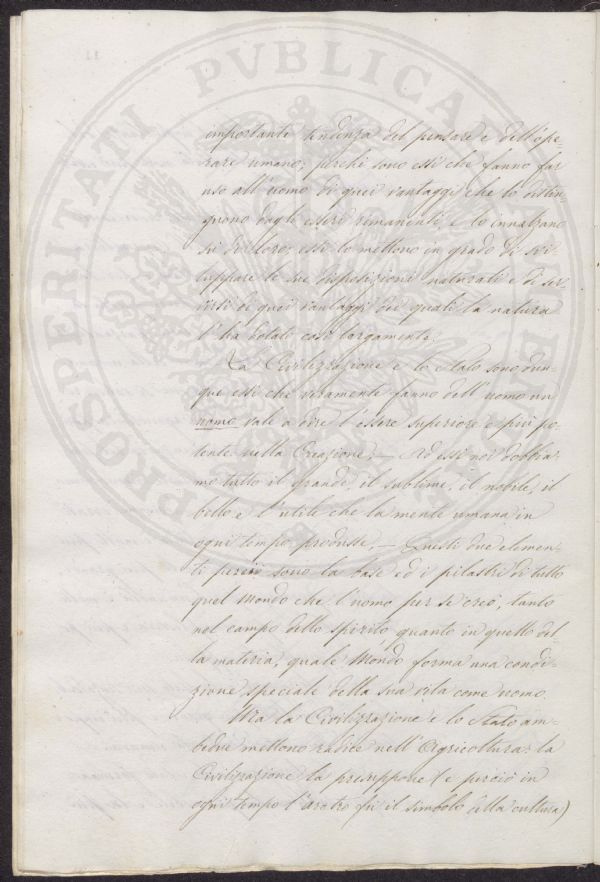 importante tendenza del pensare e dell'ope-
rare umano; perchè sono essi che fanno far
uso all'uomo di quei vantaggi che lo distin-
guono dagli esseri rimanenti e lo innalzano
su di loro; essi lo mettono in grado di svi-
luppare le sue disposizioni naturali e di ser-
virsi di quei vantaggi dei quali la natura
l'ha dotato così largamente.
La Civilizzazione e lo Stato sono dun-
que essi che veramente fanno dell'uomo un
uomo vale a dire l'essere superiore e più po-
tente nella Creazione, — Ad essi noi dobbia-
mo tutto il grande, il sublime, il nobile, il
bello e l'utile che la mente umana in
ogni tempo produsse, — Questi due elemen-
ti perciò sono la base ed i pilastri di tutto
quel Mondo che l'uomo per se creò, tanto
nel campo dello spirito, quanto in quello del-
la materia, quale Mondo forma una condi-
zione speciale della sua vita come uomo.
Ma la Civilizzazione e lo Stato am-
bedue mettono radice nell'Agricoltura: la
Civilizazione la presuppone (e perciò in
ogni tempo l'aratro fu il simbolo della cultura)
PROSPERITATI PUBLICAE